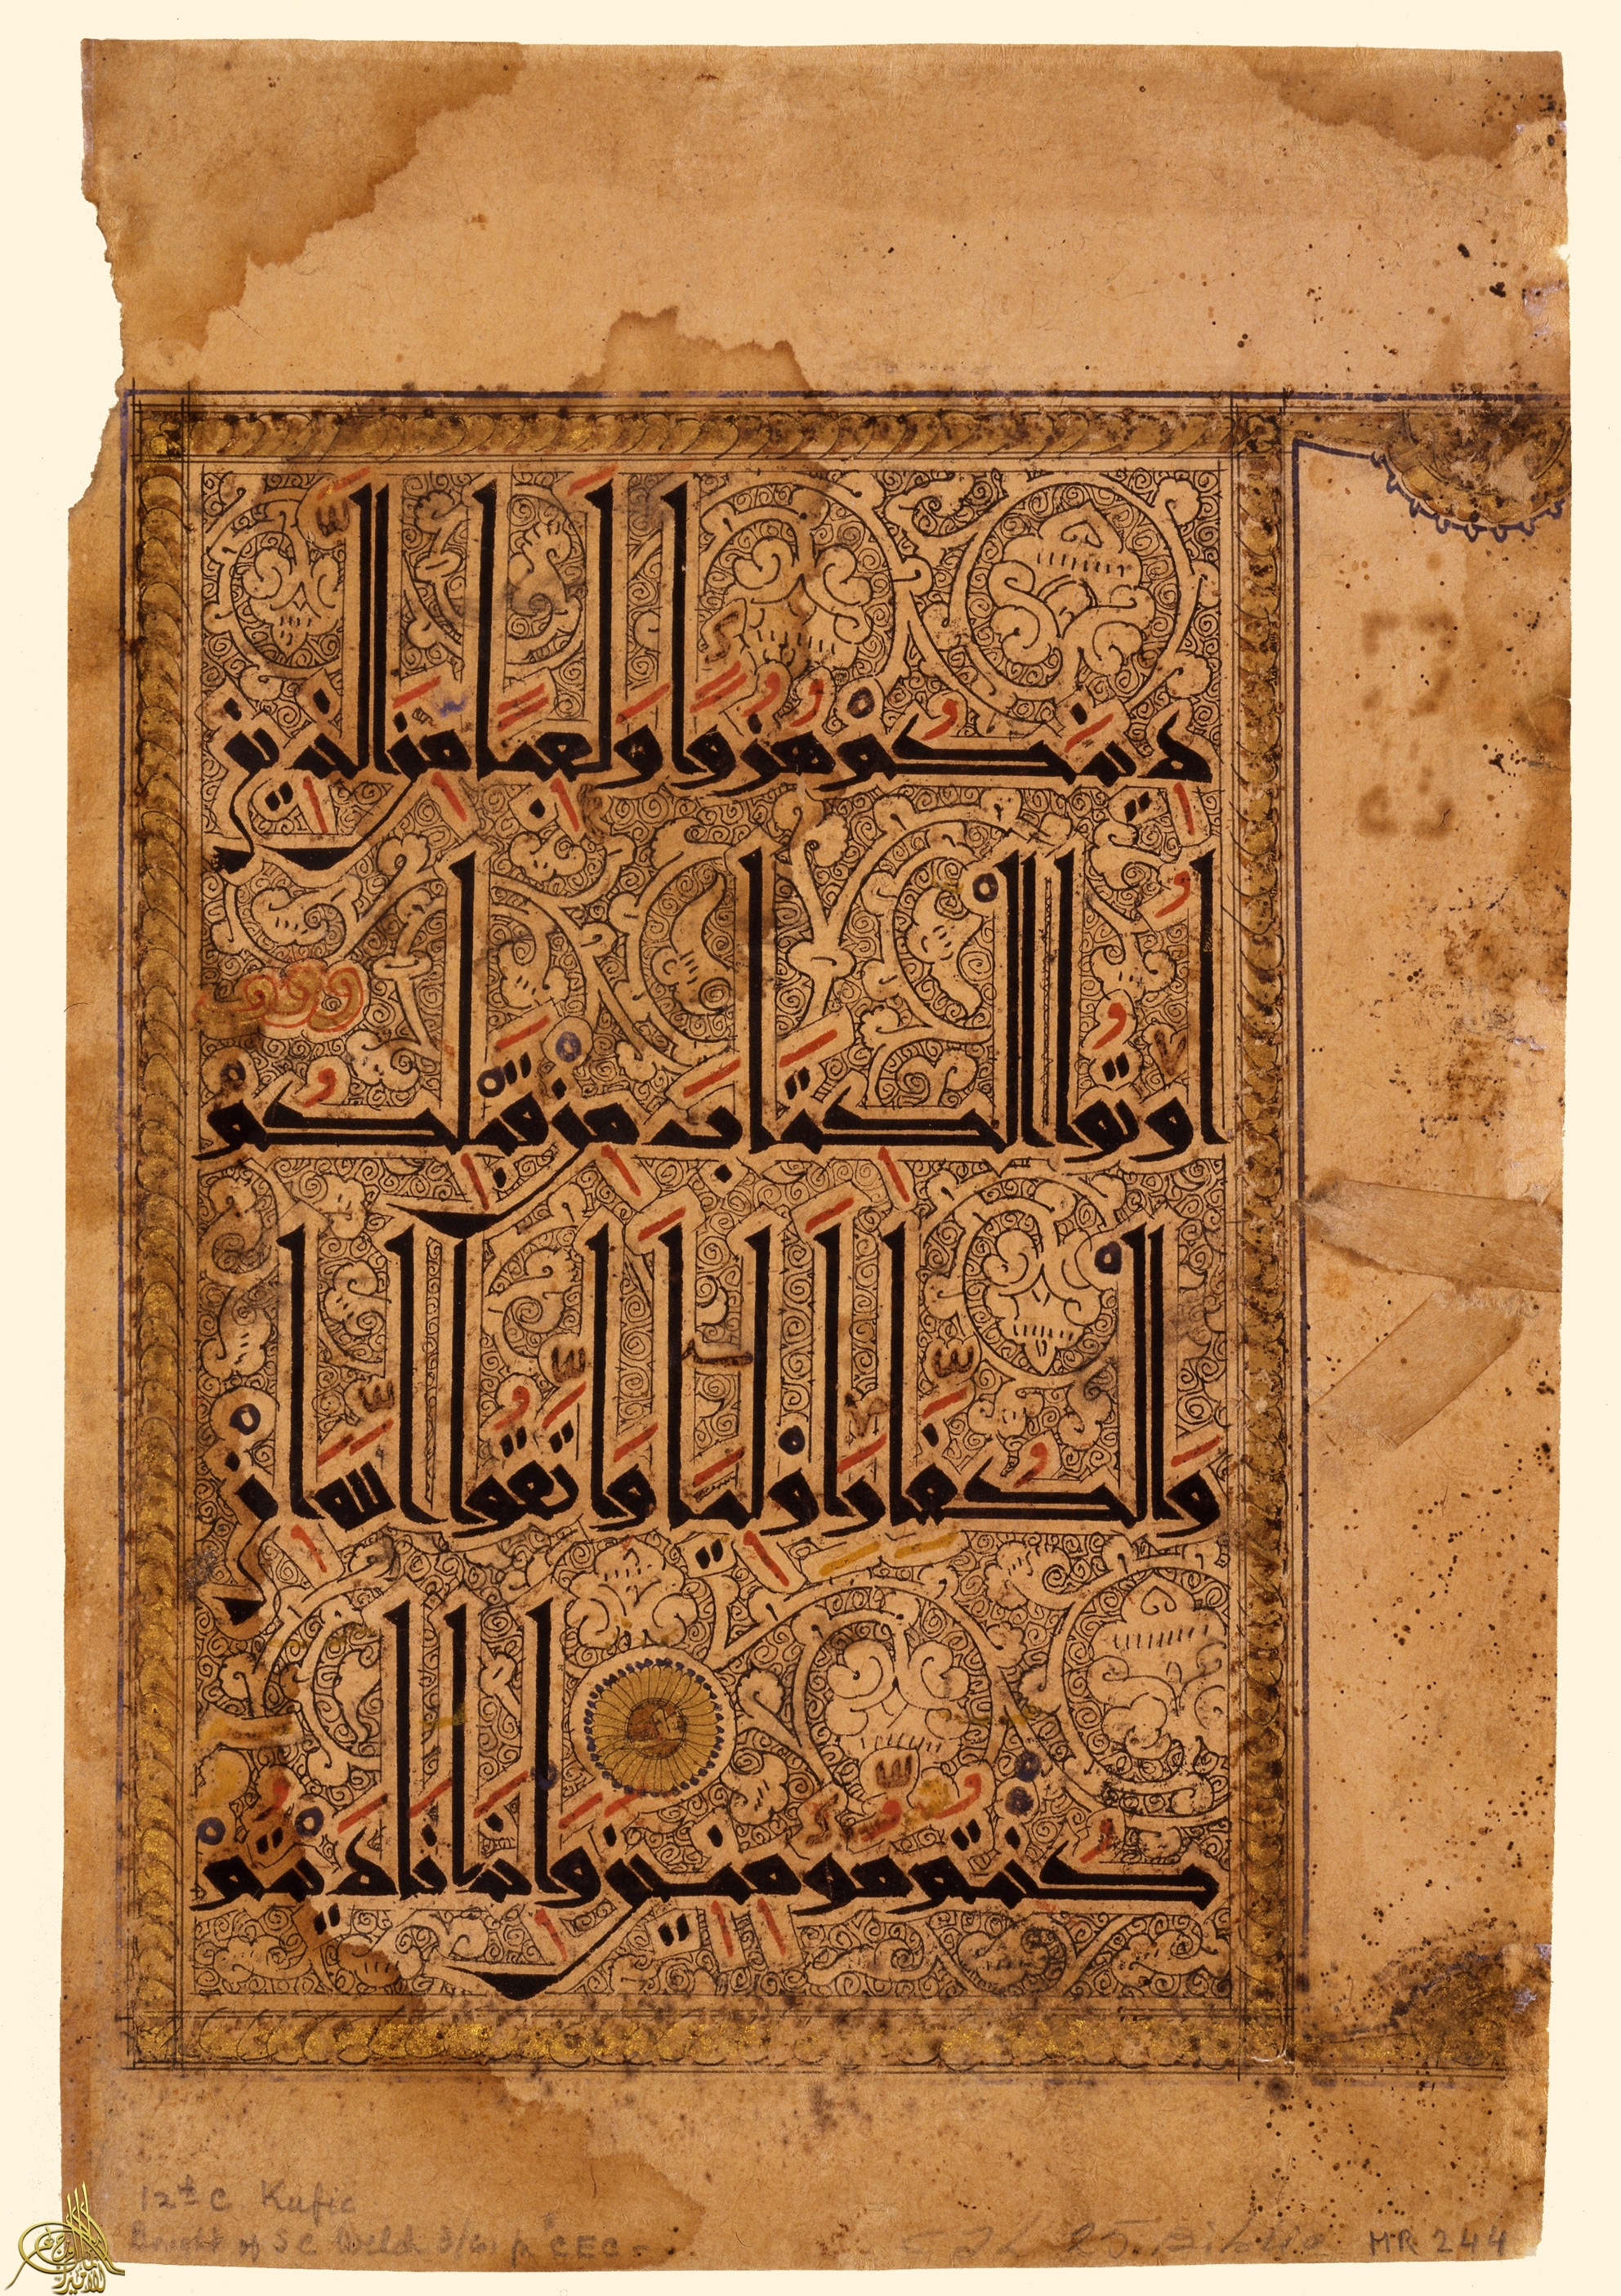 دِينَكُمْ هُزُوًا وَلَعِبًا مِنَ الَّذِينَ
أُوتُوا الْكِتَابَ مِنْ قَبْلِكُمْ
وَالْكُفَّارَ أَوْلِيَاءَ وَاتَّقُوا اللَّهَ إِنْ
كُنْتُمْ مُؤْمِنِينَ وَإِذَا نَادَيْتُمْ
12th C Kufic
Bought of S C Welch 3/61 p CEC
MR 244